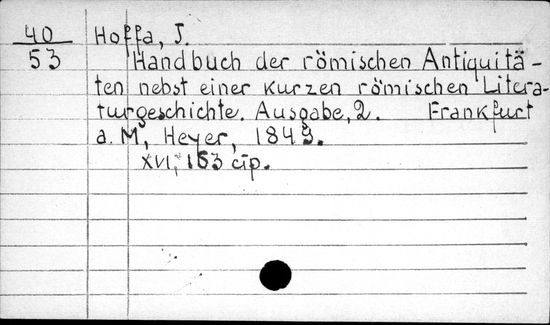 40 Hoffa, J.
53 Handbuch der römischen Antiquitä-
ten nebst einer kurzen römischen Litera-
turgeschichte. Ausgabe, 2. Frankfurt
a. M., Heyer, 1849.
XVI, 153 стр.